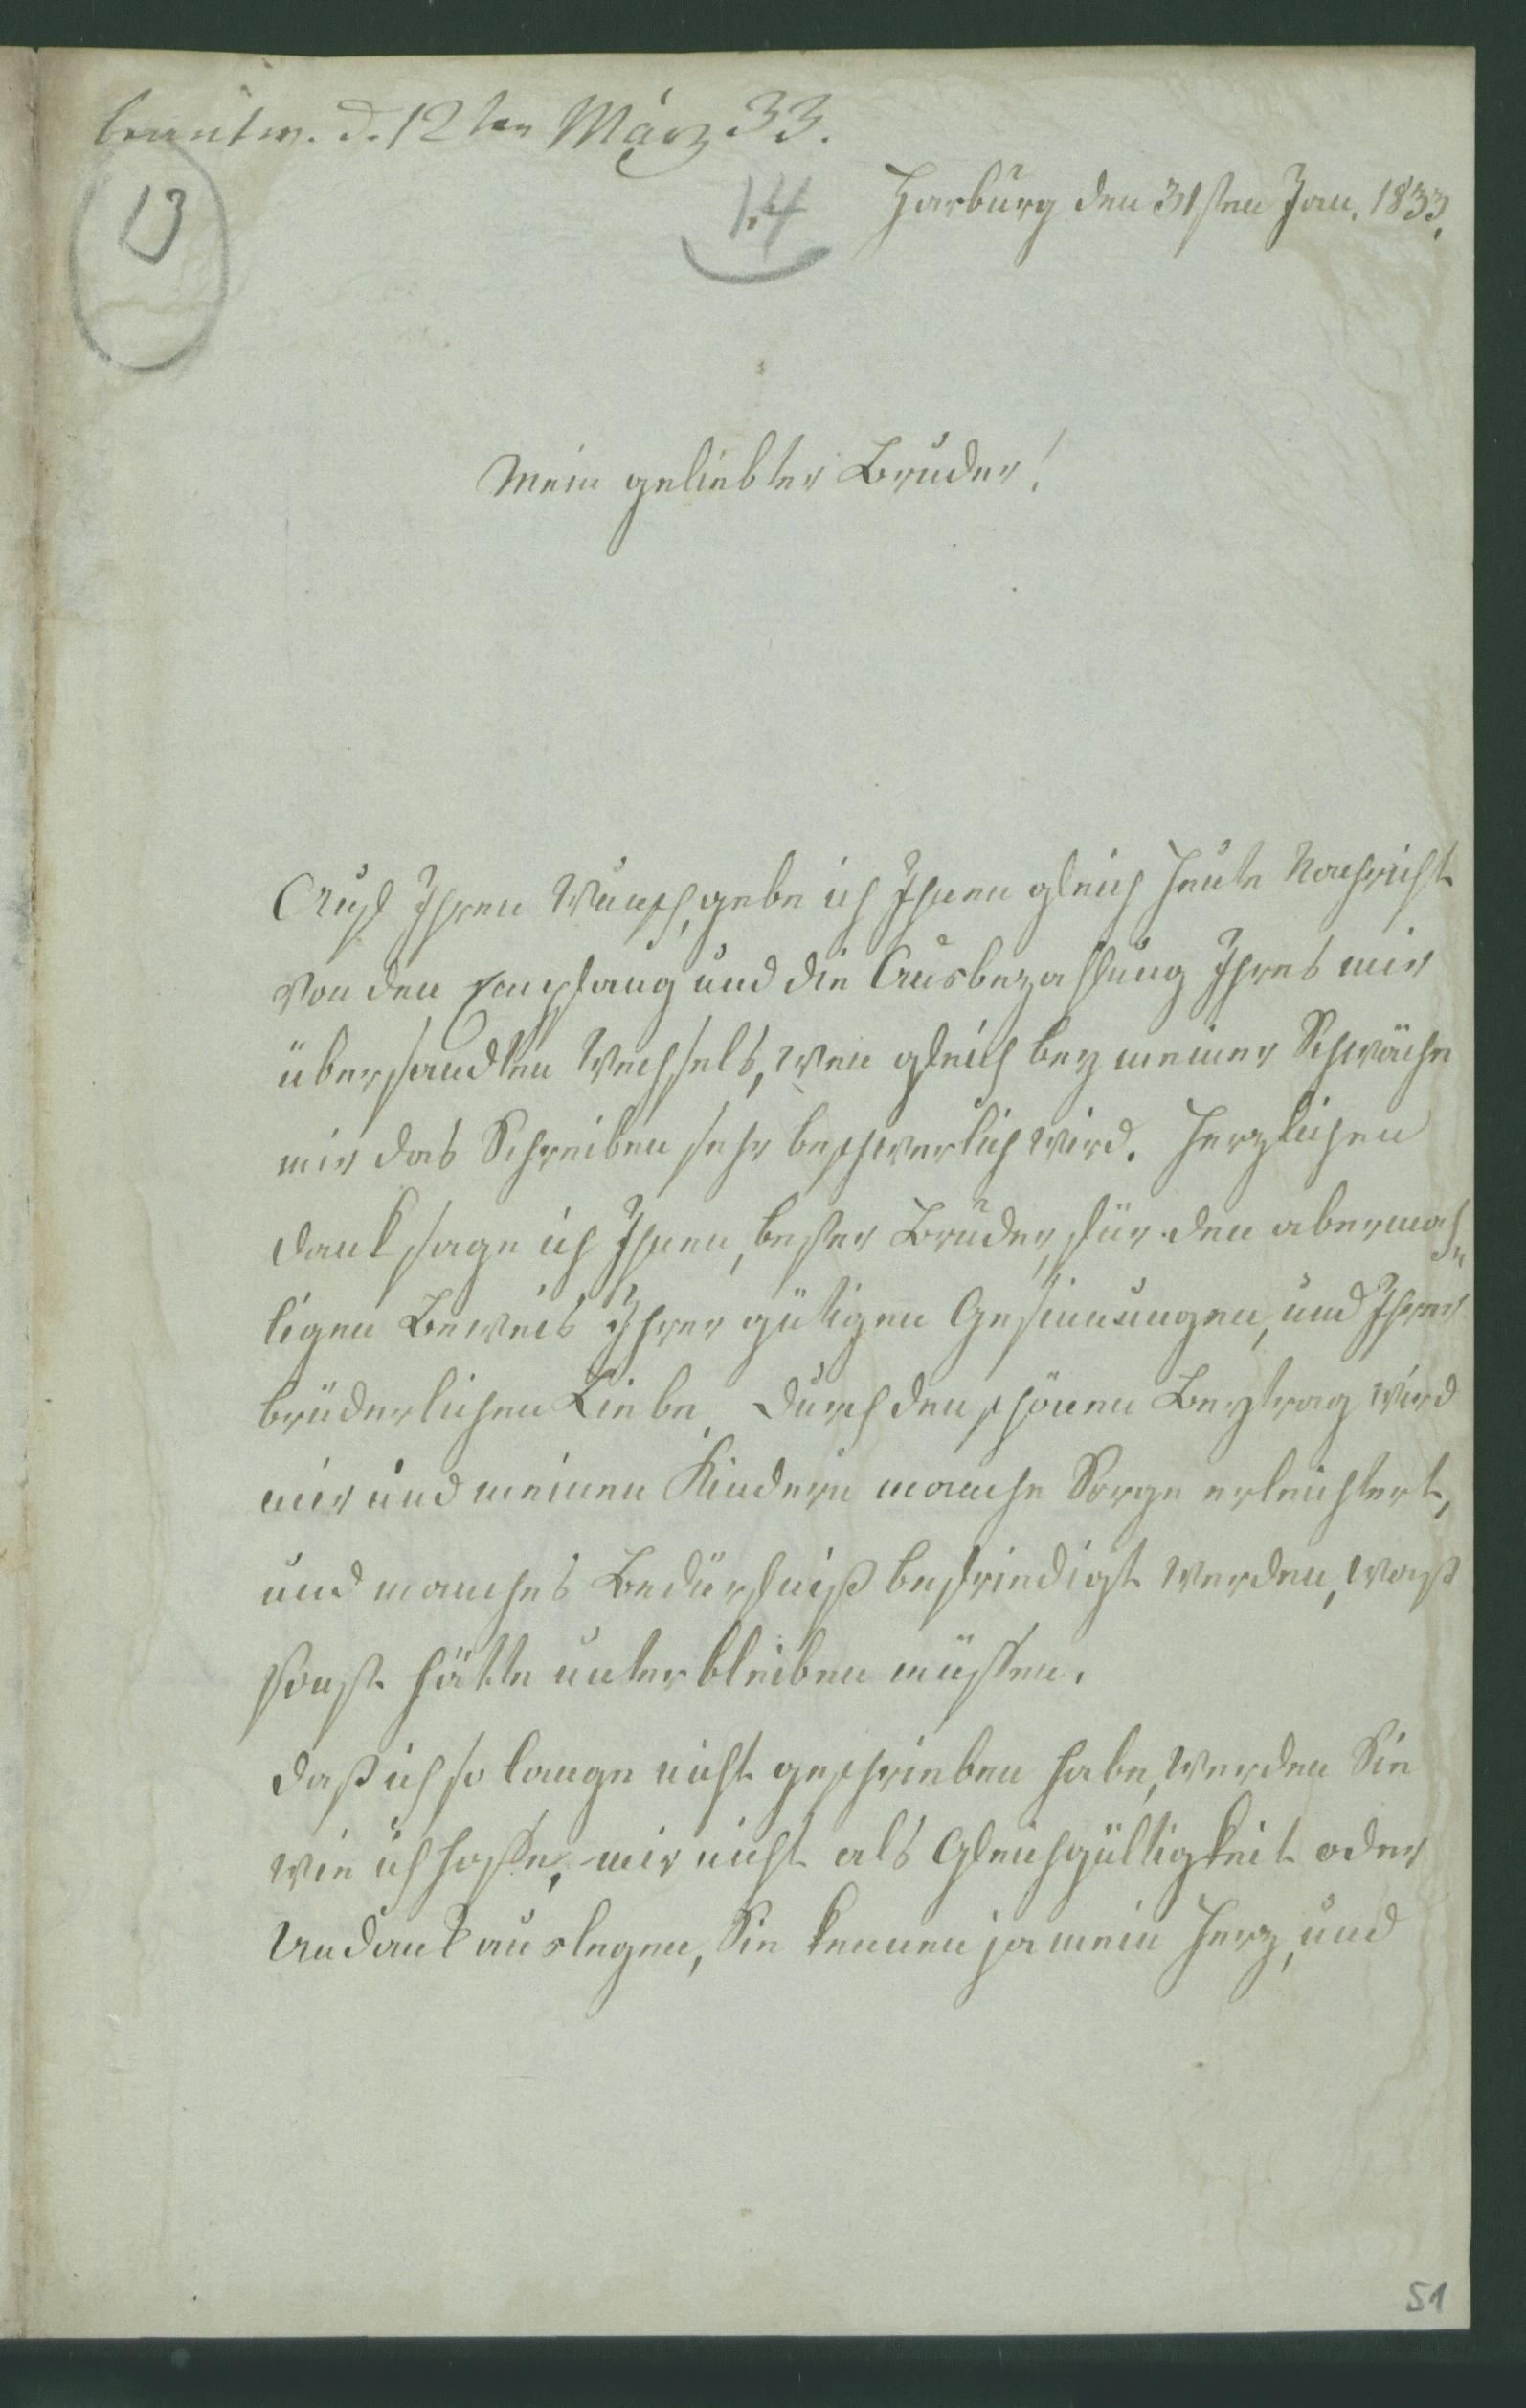 beantw. d. 12ten März 33.
13
14
Harburg den 31sten Jan. 1833.
Mein geliebter Bruder!
Auf Ihren Wunsch, gebe ich Ihnen gleich heute Nachricht
von den Empfang und die Ausbezahlung Ihres mir
übersandten Wechsels, wen gleich bey meiner Schwäche
mir das Schreiben sehr beschwerlich wird. Herzlichen
Dank sage ich Ihnen, bester Bruder, für den abermah„
ligen Beweis Ihrer gütigen Gesinnungen, und Ihrer
brüderlichen Liebe. Durch den schönen Beytrag wird
mir und meinen Kindern manche Sorge erleichtert,
und manches Bedürfniß befriedigt werden, waß
sonst hätte unterbleiben müssen.
Daß ich so lange nicht geschrieben habe, werden Sie
wie ich hoffe, mir nicht als Gleichgültigkeit oder
Undank auslegen, Sie kennen ja mein Herz, und
51